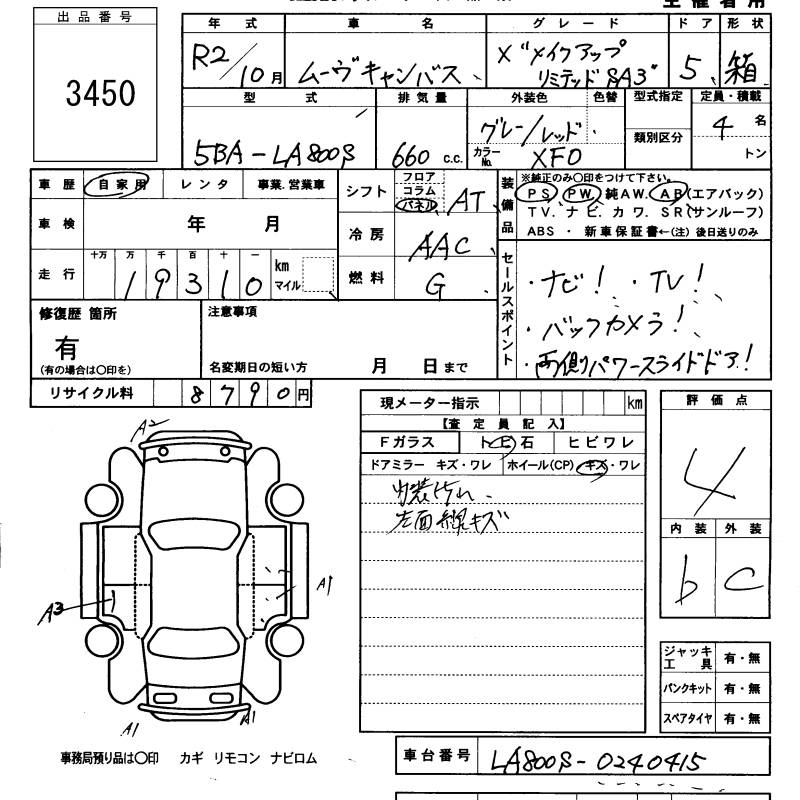 出品番号
3450
年 式 車 名 グレード ドア 形状
R2/10月 ムーヴキャンバス X"メイクアップ 5 箱
リミテッド SA3"
型 式 排気量 外装色 色替 型式指定 定員・積載
5BA-LA800S 660 c.c. グレー/レッド 4名
類別区分
カラーNo. XF0 トン
車歴 自家用 レンタ 事業.営業車
シフト フロア コラム パネル AT
装備品
※純正のみ〇印をつけて下さい。
PS PW 純AW. AB(エアバック)
TV. ナビ. カワ. SR(サンルーフ)
ABS ・ 新車保証書←(注) 後日送りのみ
車検 年 月
冷房 AAC
走行 十万 万 千 百 十 一
19310 km マイル
燃料 G
セールスポイント
・ナビ! ・TV!
・バックカメラ!
・両側パワースライドドア!
修復歴 箇所
有
(有の場合は〇印を)
注意事項
名変期日の短い方 月 日まで
リサイクル料 8790円
現メーター指示 km
【査定員記入】
Fガラス トビ石 ヒビワレ
ドアミラー キズ・ワレ ホイール(CP) キズ・ワレ
内装汚れ、
左面線キズ
評価点
4
内装 外装
b C
A2
A3
A1
A1
A1
ジャッキ工具 有・無
パンクキット 有・無
スペアタイヤ 有・無
事務局預り品は〇印 カギ リモコン ナビロム
車台番号 LA800S-0240415